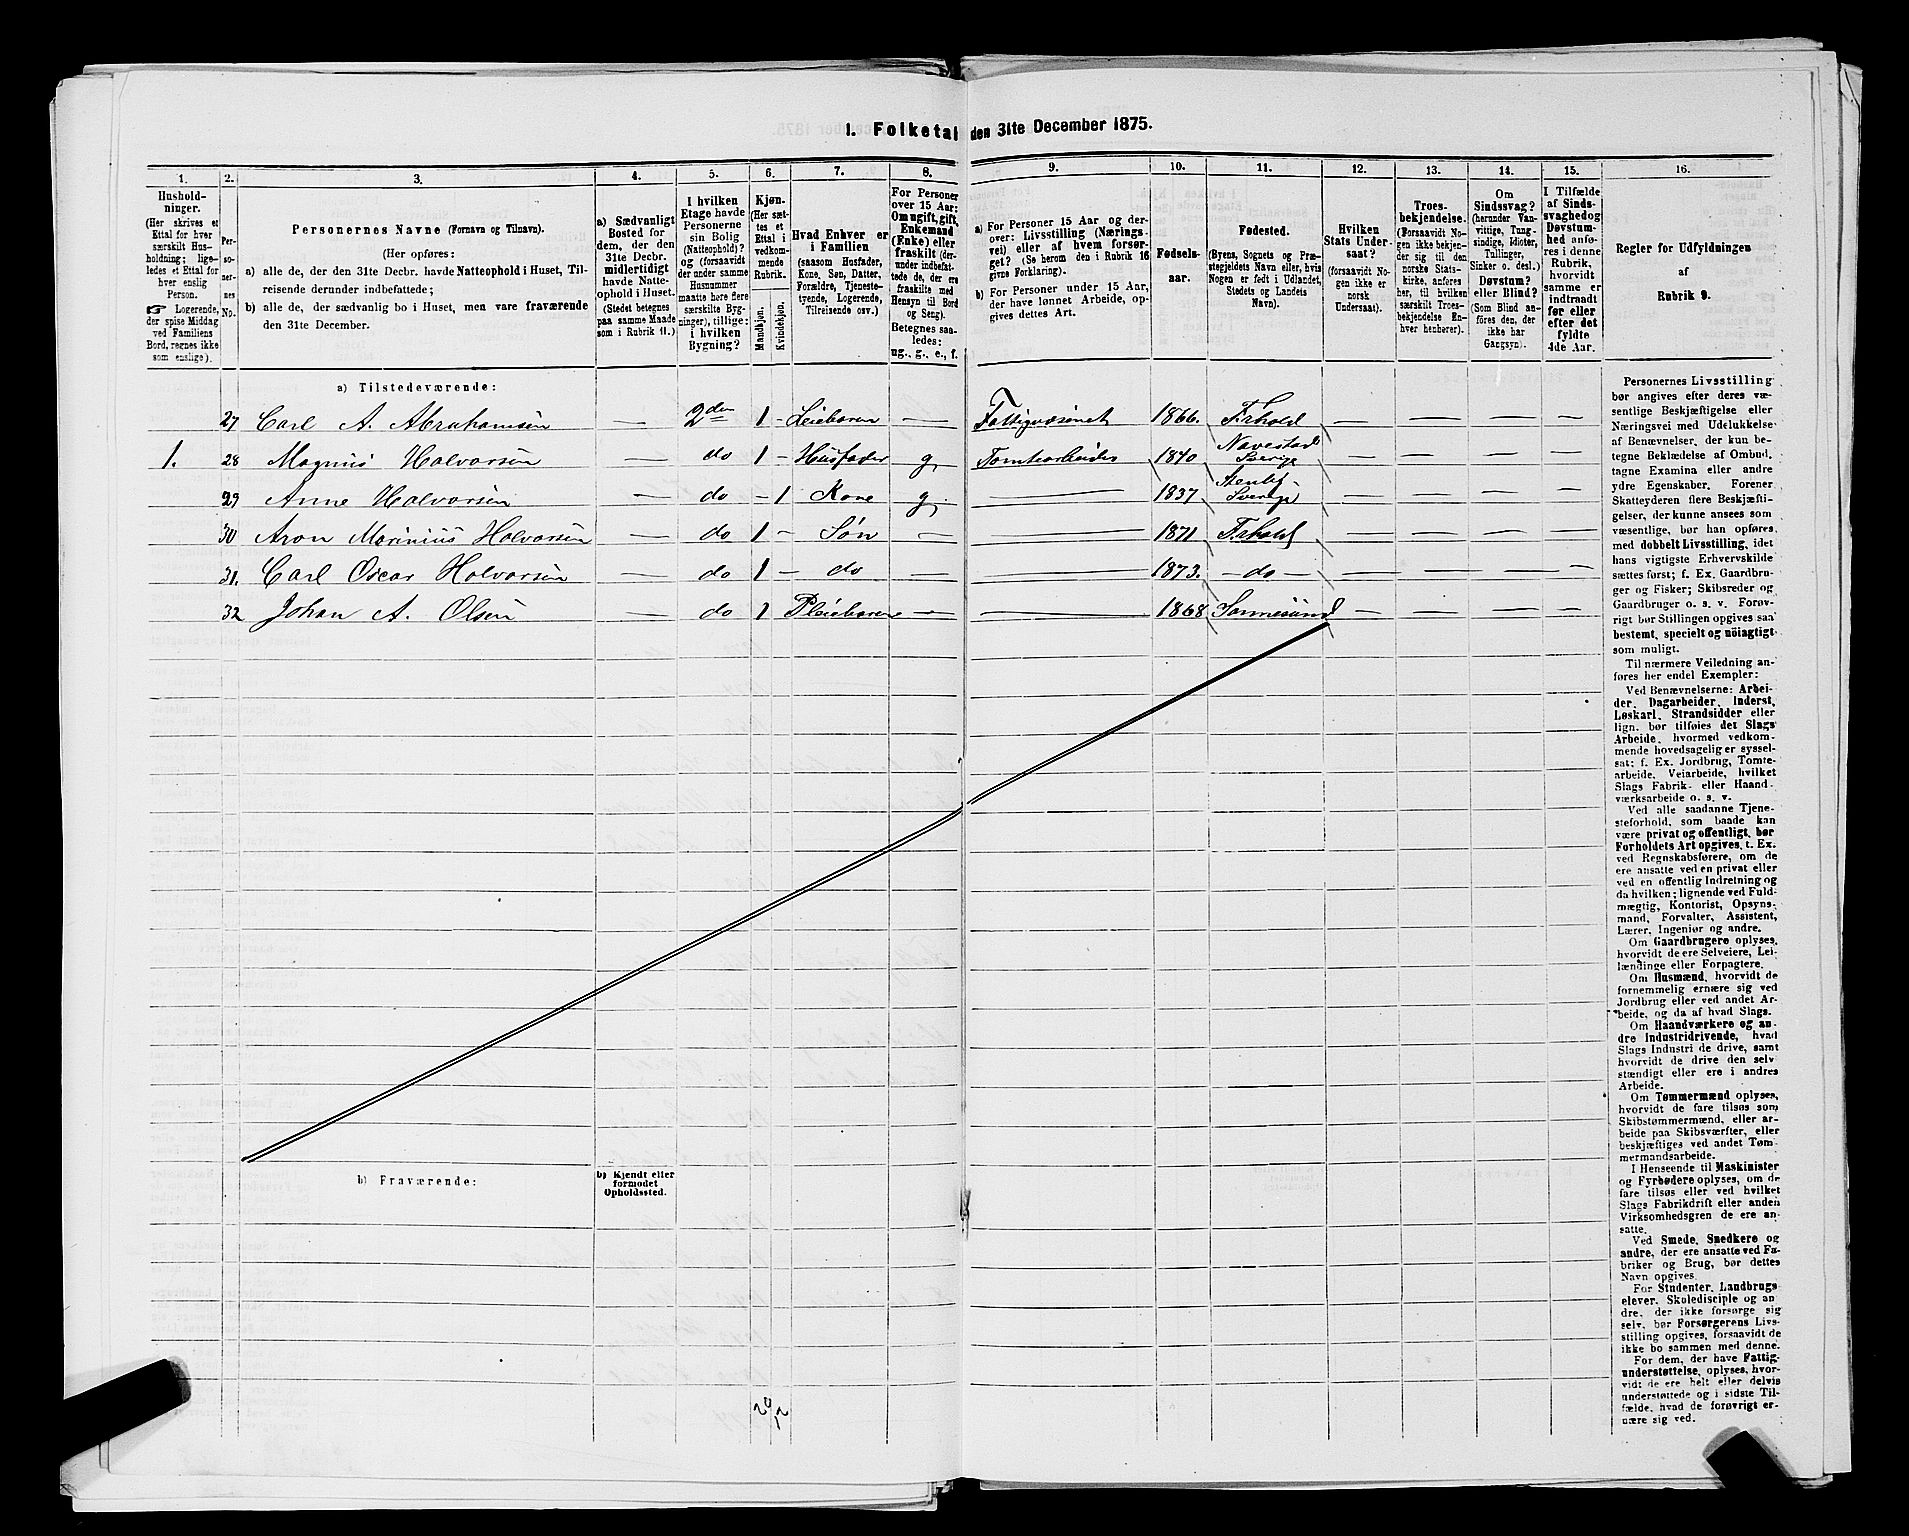 1. Folketal den 31te December 1875.
1. 2. 3. 4. 5. 6. 7. 8. 9. 10. 11. 12. 13. 14. 15. 16.
Hushold-
ninger.
(Her skrives et
Ettal for hver
særskilt Hus-
holdning; lige-
ledes et Ettal for
hver enslig
Person.
☞ Logerende,
der spise Middag
ved Familiens
Bord, regnes ikke
som enslige).
Per-
so-
ner-
nes
No.
Personernes Navne (Fornavn og Tilnavn).
(Her opføres:
a) alle de, der den 31te Decbr. havde Natteophold i Huset, Til-
reisende derunder indbefattede;
b) alle de, der sædvanlig bo i Huset, men vare fraværende
den 31te December.
a) Sædvanligt
Bosted for
dem, der den
31te Decbr.
midlertidigt
havde Natte-
ophold i Huset.
(Stedet betegnes
paa samme Maade
som i Rubrik 11.)
I hvilken
Etage havde
Personerne
sin Bolig
(Natteophold)?
og (forsaavidt
der under samme
Husnummer
maatte høre flere
særskilte Byg-
ninger), tillige:
i hvilken
Bygning?
Kjøn.
(Her sæt-
tes et
Ettal i
vedkom-
mende
Rubrik.
Mandkjøn.
Kvindekjøn.
Hvad Enhver er
i Familien
(saasom Husfader,
Kone, Søn, Datter,
Forældre, Tjeneste-
tyende, Logerende,
Tilreisende osv.)
For Personer
over 15 Aar:
Om ugift, gift,
Enkemand
(Enke) eller
fraskilt (der-
under indbefat-
tede de, der ere
fraskilte med
Hensyn til Bord
og Seng).
Betegnes saa-
ledes:
ug., g., e., f.
a) For Personer 15 Aar og der-
over: Livsstilling (Nærings-
vei) eller af hvem forsør-
get? (Se herom den i Rubrik 16
givne Forklaring).
b) For Personer under 15 Aar,
der have lønnet Arbeide, op-
gives dettes Art.
Fødsels-
aar.
Fødested.
(Byens, Sognets og Præ-
stegjeldets Navn eller, hvis
Nogen er født i Udlandet,
Stedets og Landets
Navn).
Hvilken
Stats Under-
saat?
(forsaavidt No-
gen ikke er
norsk
Undersaat).
Troes-
bekjendelse.
(Forsaavidt No-
gen ikke bekjen-
der sig til den
norske Stats-
kirke, anføres
her, til hvilken
særskilt Troes-
bekjendelse En-
hver henhører).
Om
Sindssvag?
(herunder Van-
vittige, Tung-
sindige, Idioter,
Tullinger,
Sinker o. desl.)
Døvstum?
eller Blind?
(Som Blind an-
føres den, der
ikke har
Gangsyn).
I Tilfælde
af Sinds-
svaghed og
Døvstum-
hed anfø-
res i denne
Rubrik,
hvorvidt
samme er
indtraadt
før eller
efter det
fyldte
4de Aar.
Regler for Udfyldningen
af
Rubrik 9.
a) Tilstedeværende:
27 Carl A. Abrahamsen — 2den 1 - Leiebaren — Fattigvæsenet 1866. Trhold — — — —
1. 28 Magnus Halvarsen — do 1 - Husfader g. Tomtearbeider 1840 Navestad Sverige — — — —
29 Anne Halvarsen — do - 1 Kone g. — 1837 Sverige — — — —
30 Aron Marinius Halvarsen — do 1 - Søn — — 1871 Trhold — — — —
31. Carl Oscar Halvarsen — do 1 - do — — 1873. - do - — — — —
32 Johan A. Olsen — do 1 Pleiebaren — — 1868 Sannesund — — — —
b) Fraværende:
b) Kjendt eller
formodet
Opholdssted.
Personernes Livsstilling
bør angives efter deres væ-
sentlige Beskjæftigelse eller
Næringsvei med Udelukkelse
af Benævnelser, der kun be-
tegne Beklædelse af Ombud,
tagne Examina eller andre
ydre Egenskaber. Forener
Skatteyderen flere Beskjæfti-
gelser, der kunne ansees som
væsentlige, bør han opføres
med dobbelt Livsstilling, idet
hans vigtigste Erhvervskilde
sættes først; f. Ex. Gaardbru-
ger og Fisker; Skibsreder og
Gaardbruger o. s. v. Forøv-
rigt bør Stillingen opgives saa
bestemt, specielt og nöiagtigt
som muligt.
Til nærmere Veiledning an-
føres her endel Exempler:
Ved Benævnelserne: Arbei-
der, Dagarbeider, Inderst,
Løskarl, Strandsidder eller
lign. bør tilføies det Slags
Arbeide, hvormed vedkom-
mende hovedsagelig er syssel-
sat; f. Ex. Jordbrug, Tomte-
arbeide, Veiarbeide, hvilket
Slags Fabrik- eller Haand-
værksarbeide o. s. v.
Ved alle saadanne Tjene-
steforhold, som baade kan
være privat og offentligt, bør
Forholdets Art opgives, t. Ex.
ved Regnskabsførere, om de
ere ansatte ved en privat eller
ved en offentlig Indretning og
da hvilken; lignende ved Fuld-
mægtig, Kontorist, Opsyns-
mand, Forvalter, Assistent,
Lærer, Ingeniør og andre.
Om Gaardbrugere oplyses,
hvorvidt de ere Selveiere, Lei-
lændinge eller Forpagtere.
Om Husmænd, hvorvidt de
fornemmelig ernære sig ved
Jordbrug eller ved andet Ar-
beide, og da af hvad Slags.
Om Haandværkere og an-
dre Industridrivende, hvad
Slags Industri de drive, samt
hvorvidt de drive den selv-
stændigt eller ere i andres
Arbeide.
Om Tømmermænd oplyses,
hvorvidt de fare tilsøs som
Skibstømmermænd, eller ar-
beide paa Skibsværfter, eller
beskjæftiges ved andet Tøm-
mermandsarbeide.
I Henseende til Maskinister
og Fyrbødere oplyses, om de
fare tilsøs eller ved hvilket
Slags Fabrikdrift eller anden
Virksomhedsgren de ere an-
satte.
Ved Smede, Snedkere og
andre, der ere ansatte ved Fa-
briker og Brug, bør dettes
Navn opgives.
For Studenter, Landbrugs-
elever, Skoledisciple og an-
dre, der ikke forsørge sig
selv, bør Forsørgerens Livs-
stilling opgives, forsaavidt de
ikke bo sammen med denne.
For dem, der have Fattig-
understøttelse, oplyses, hvor-
vidt de ere helt eller delvis
understøttede og i sidste Til-
fælde, hvad de forøvrigt er-
nære sig ved.